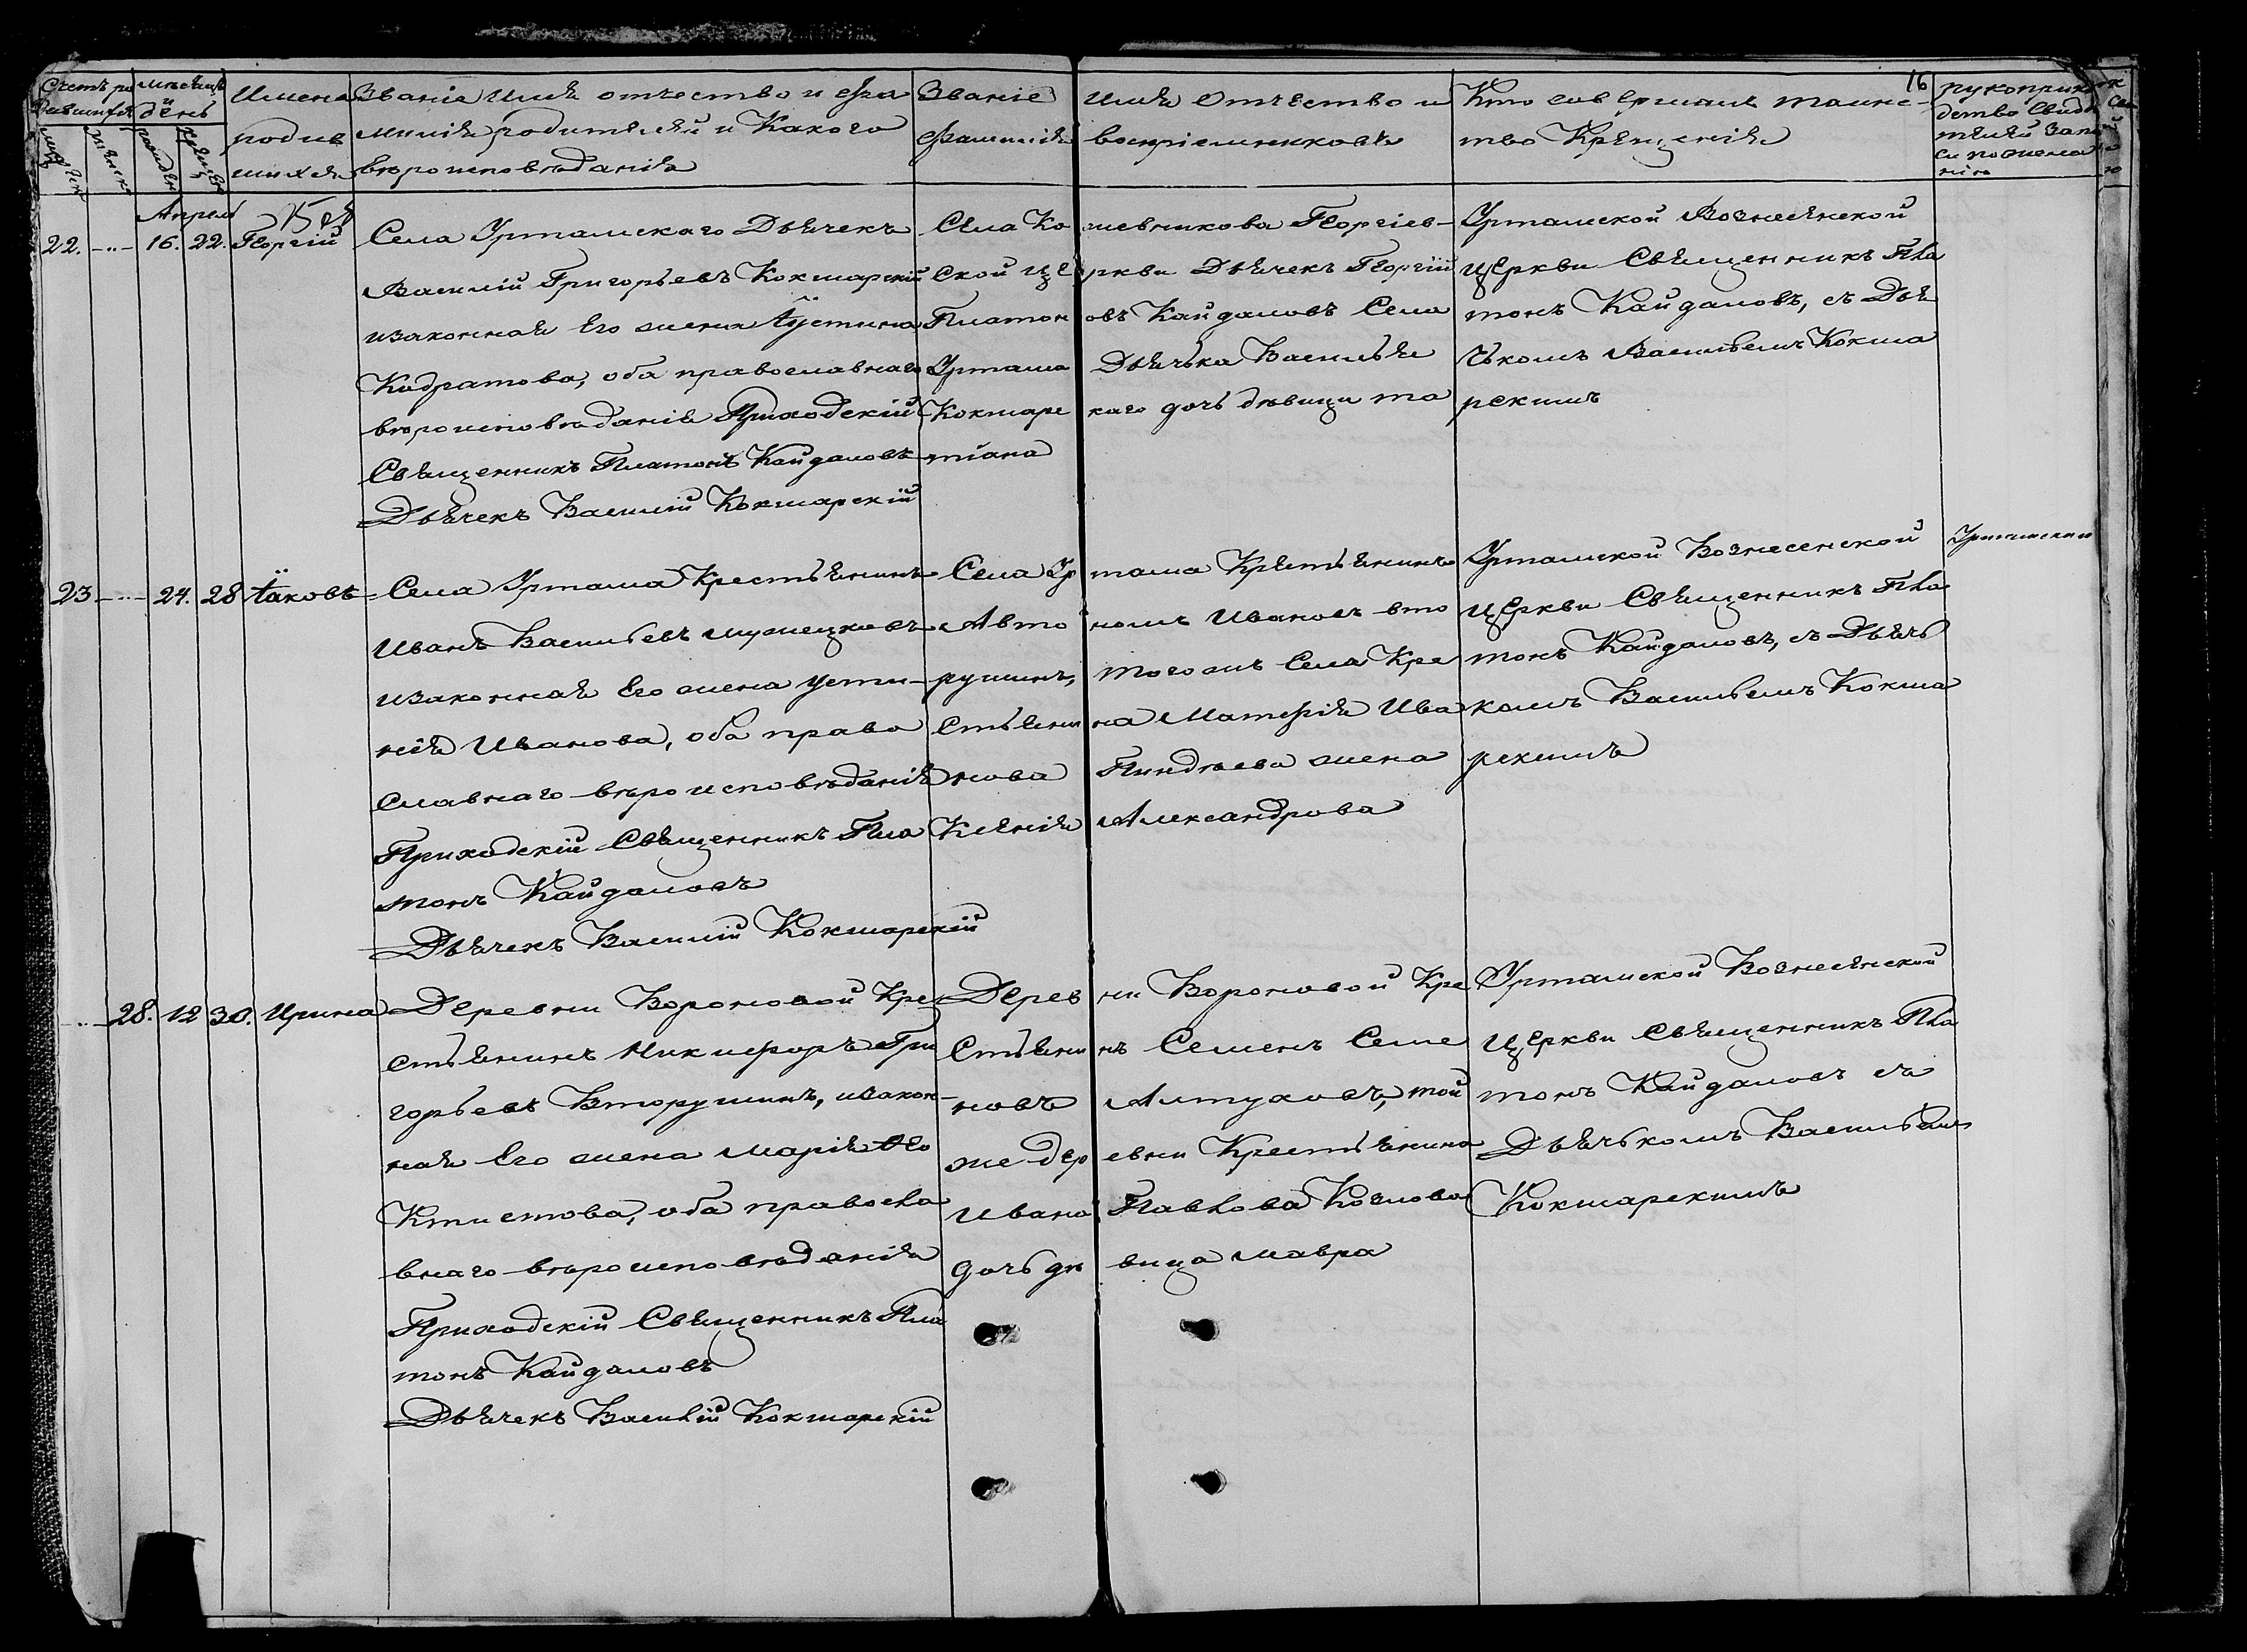 16
Счетъ ро
дившихся
мѣсяцъ
и
день
Имена
родив
шихся
Званіе имя отчество и фа
милія родителей и Какого
вѣроисповѣданія
Званіе имя Отчество и
Фамилія воспріемниковъ
Кто совершалъ таинс-
тво Крещенія
рукоприк
дство Свидѣ
телей запи
си по жела
нію
Апрель
22. 16. 22. Георгій
Села Уртамскаго Дьячекъ
Василій Григорьевъ Кокшарскій
изаконная Его жена Іустина
Кодратова, оба православнаго
вѣроисповѣданія Приходскій
Священникъ Платонъ Кайдаловъ
Дьячекъ Василій Кокшарскій
Села Ко жевникова Георгіев-
ской Це ркви Дьячекъ Георгій
Платон овъ Кайдаловъ Села
Уртама Дьячька Василья
Кокшарс каго дочь дѣвица та
тіана
Уртамской Вознесенской
Церкви Священникъ Пла
тонъ Кайдаловъ, съ Дья
чькомъ Васильемъ Кокша
рскимъ
23 24. 28 Іаковъ
Села Уртама Крестьянинъ
Иванъ Васильевъ мужецковъ
изаконная Его жена усти-
нія Иванова, оба право
славнаго вѣроисповѣданія
Приходскій Священникъ Пла
тонъ Кайдаловъ
Дьячекъ Василій Кокшарскій
Села Ур тама Крестьянинъ
Авто номъ Ивановъ вто
рушинъ, тогожъ Села Кре
стьяни на Матфія Ива
нова Пиндѣева жена
Ксѣнія Александрова
Уртамской Вознесенской
Церкви Священникъ Пла
тонъ Кайдаловъ, съ Дьячь
комъ Васильемъ Кокша
рскимъ
Уртамскій
28. 12 30. Ирина
Деревни Вороновой Кре
стьянинъ Никифоръ Гри
горьевъ Вторушинъ, изакон-
ная Его жена Марія Ѳео
Ктистова, оба правосла
внаго вѣроисповѣданія
Приходскій Священникъ Пла
тонъ Кайдаловъ
Дьячекъ Василій Кокшарскій
Дерев ни Вороновой Кре
стьяни нъ Семенъ Семе
новъ Алтуховъ, той
же дер евни Крестьянина
Ивана Павлова Козлова
дочь дѣ вица Мавра
Уртамской Вознесенской
Церкви Священникъ Пла
тонъ Кайдаловъ съ
Дьячькомъ Васильемъ
Кокшарскимъ